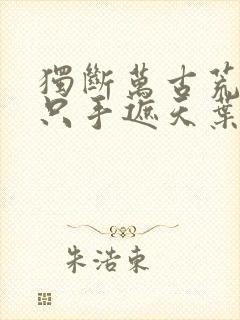 獨斷萬古荒
只手遮天葉
朱浩東